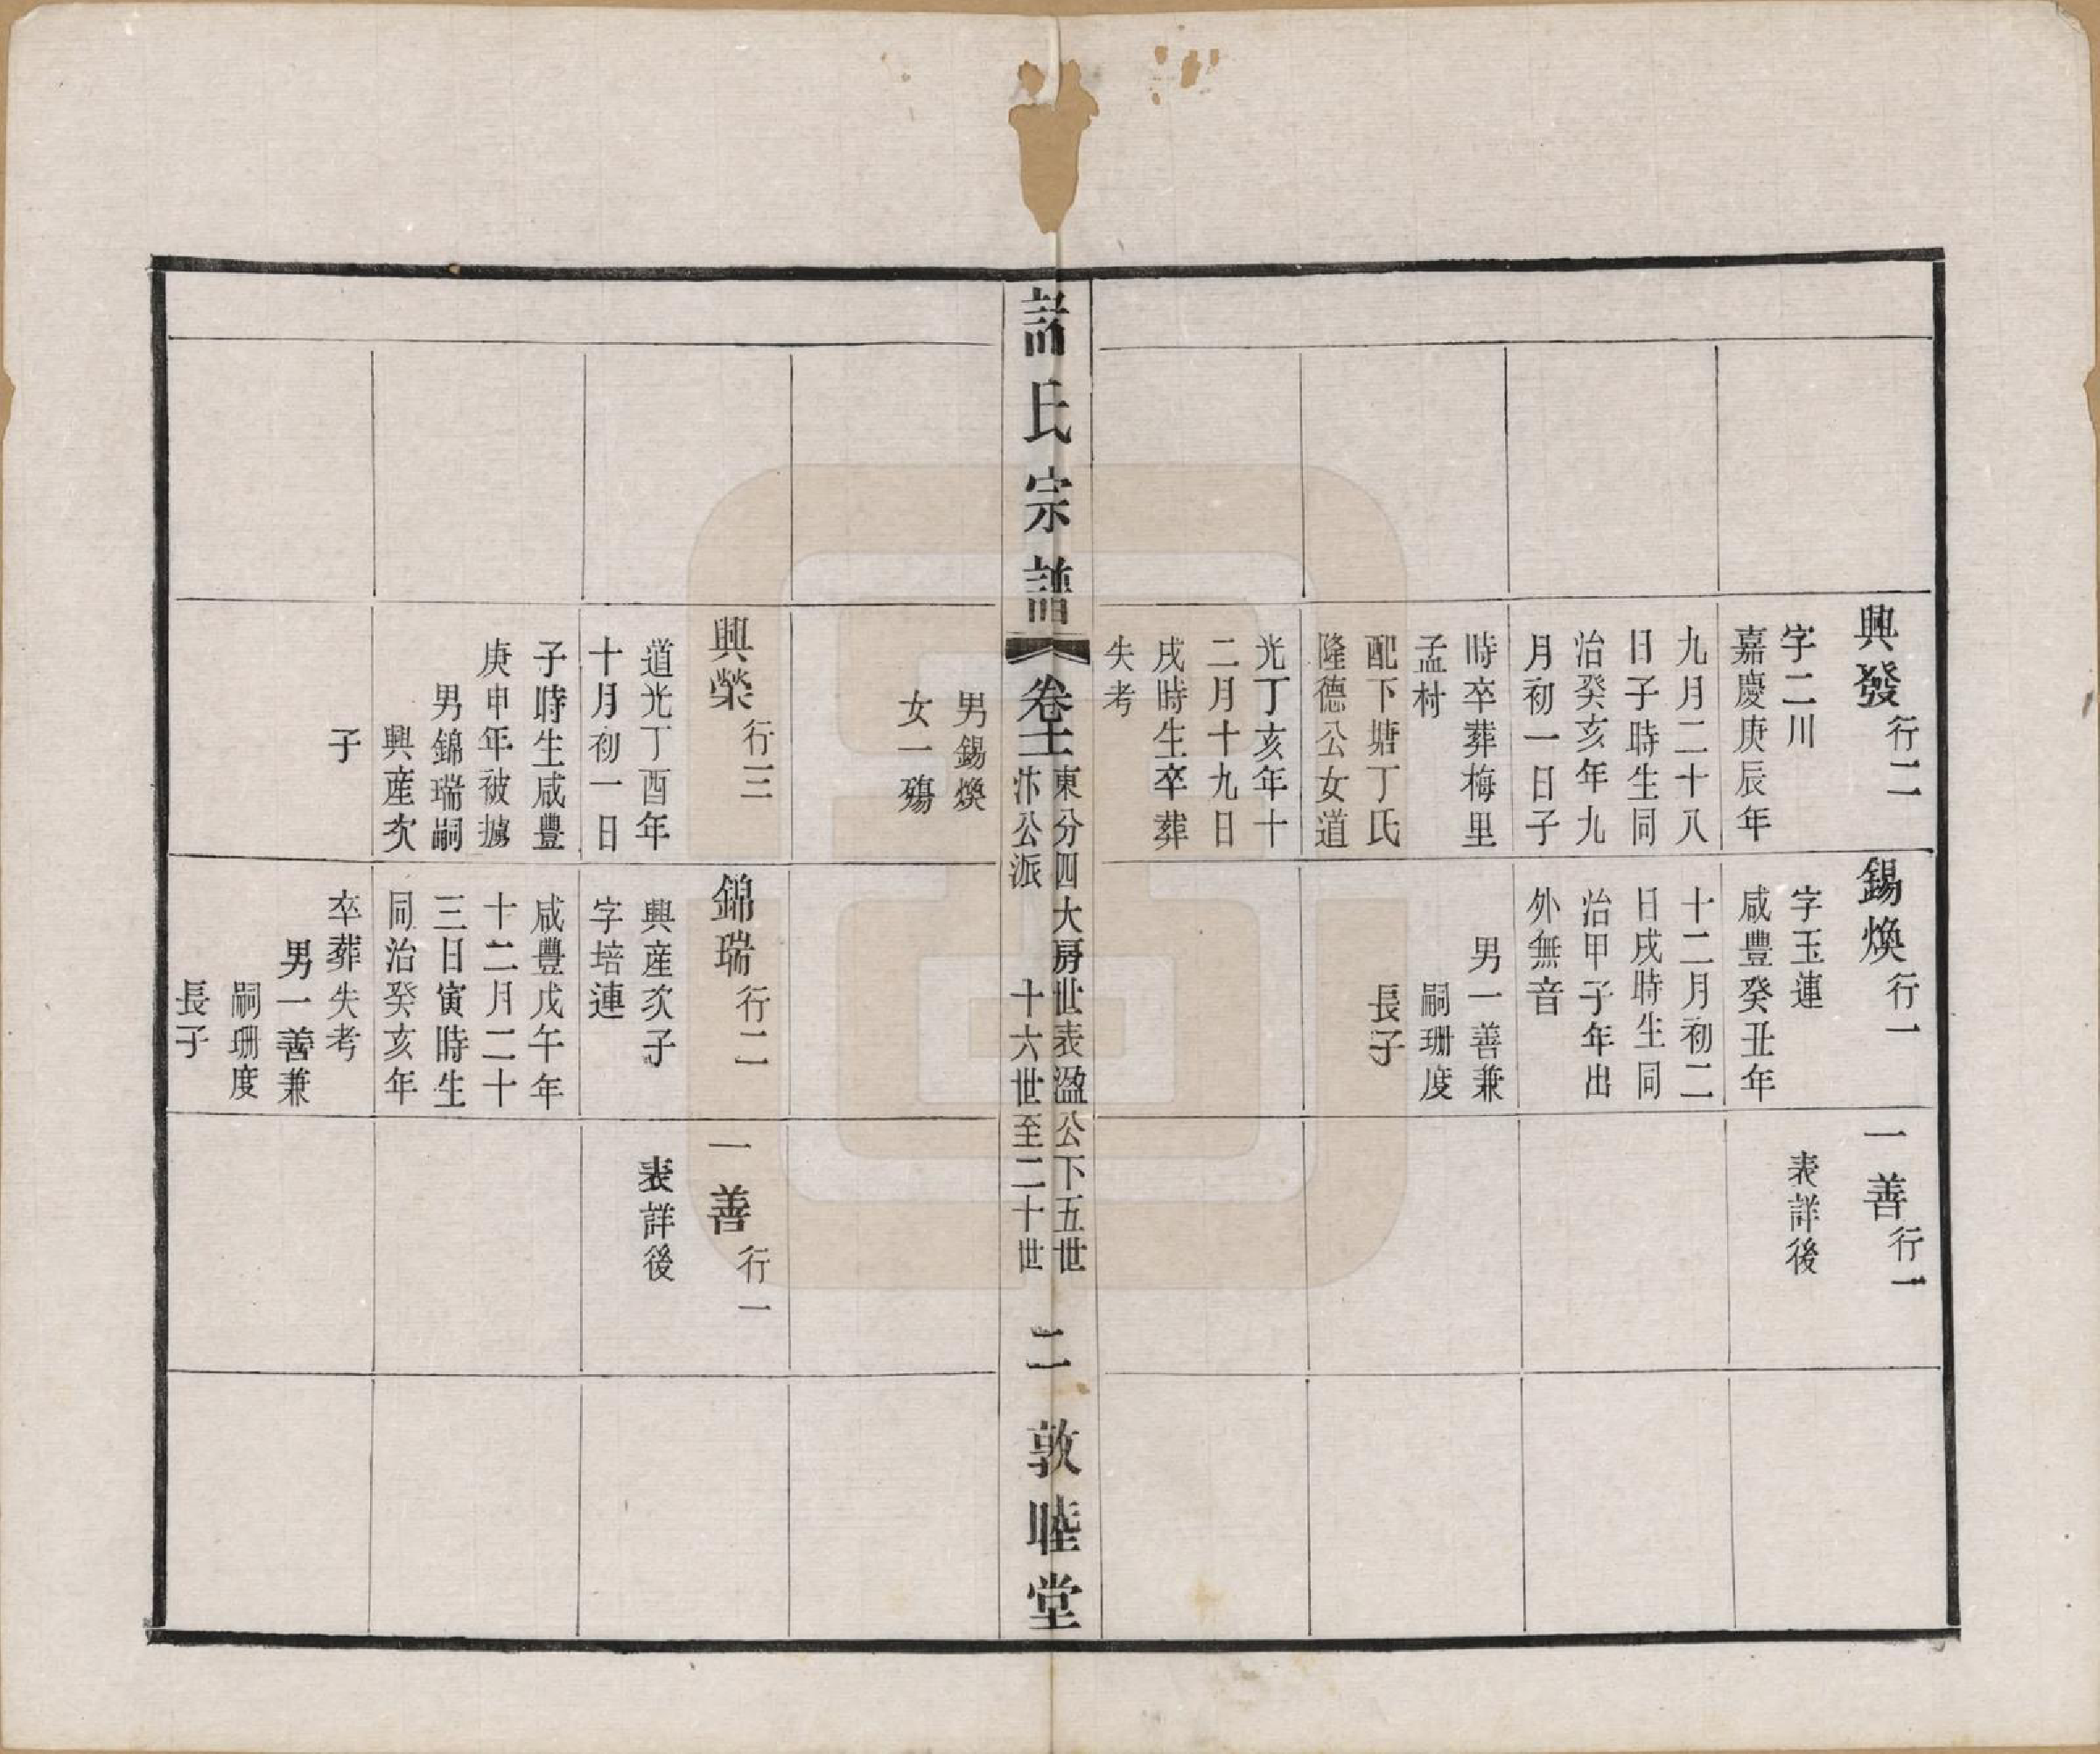 興發行二
字二川
嘉慶庚辰年
九月二十八
日子時生同
治癸亥年九
月初一日子
時卒葬梅里
孟村
配下塘丁氏
隆德公女道
光丁亥年十
二月十九日
戌時生卒葬
失考
錫煥行一
字玉連
咸豐癸丑年
十二月初二
日戌時生同
治甲子年出
外無音
男一善兼
嗣珊度
長子
一善行一
表詳後
諸氏宗譜
卷十二
東分四大房世表溋公下五世
汴公派 十六世至二十世
二
敦睦堂
男錫煥
女一殤
興榮行三
道光丁酉年
十月初一日
子時生咸豐
庚申年被擄
男錦瑞嗣
興產次
子
錦瑞行二
興產次子
字培連
咸豐戊午年
十二月二十
三日寅時生
同治癸亥年
卒葬失考
男一善兼
嗣珊度
長子
一善行一
表詳後